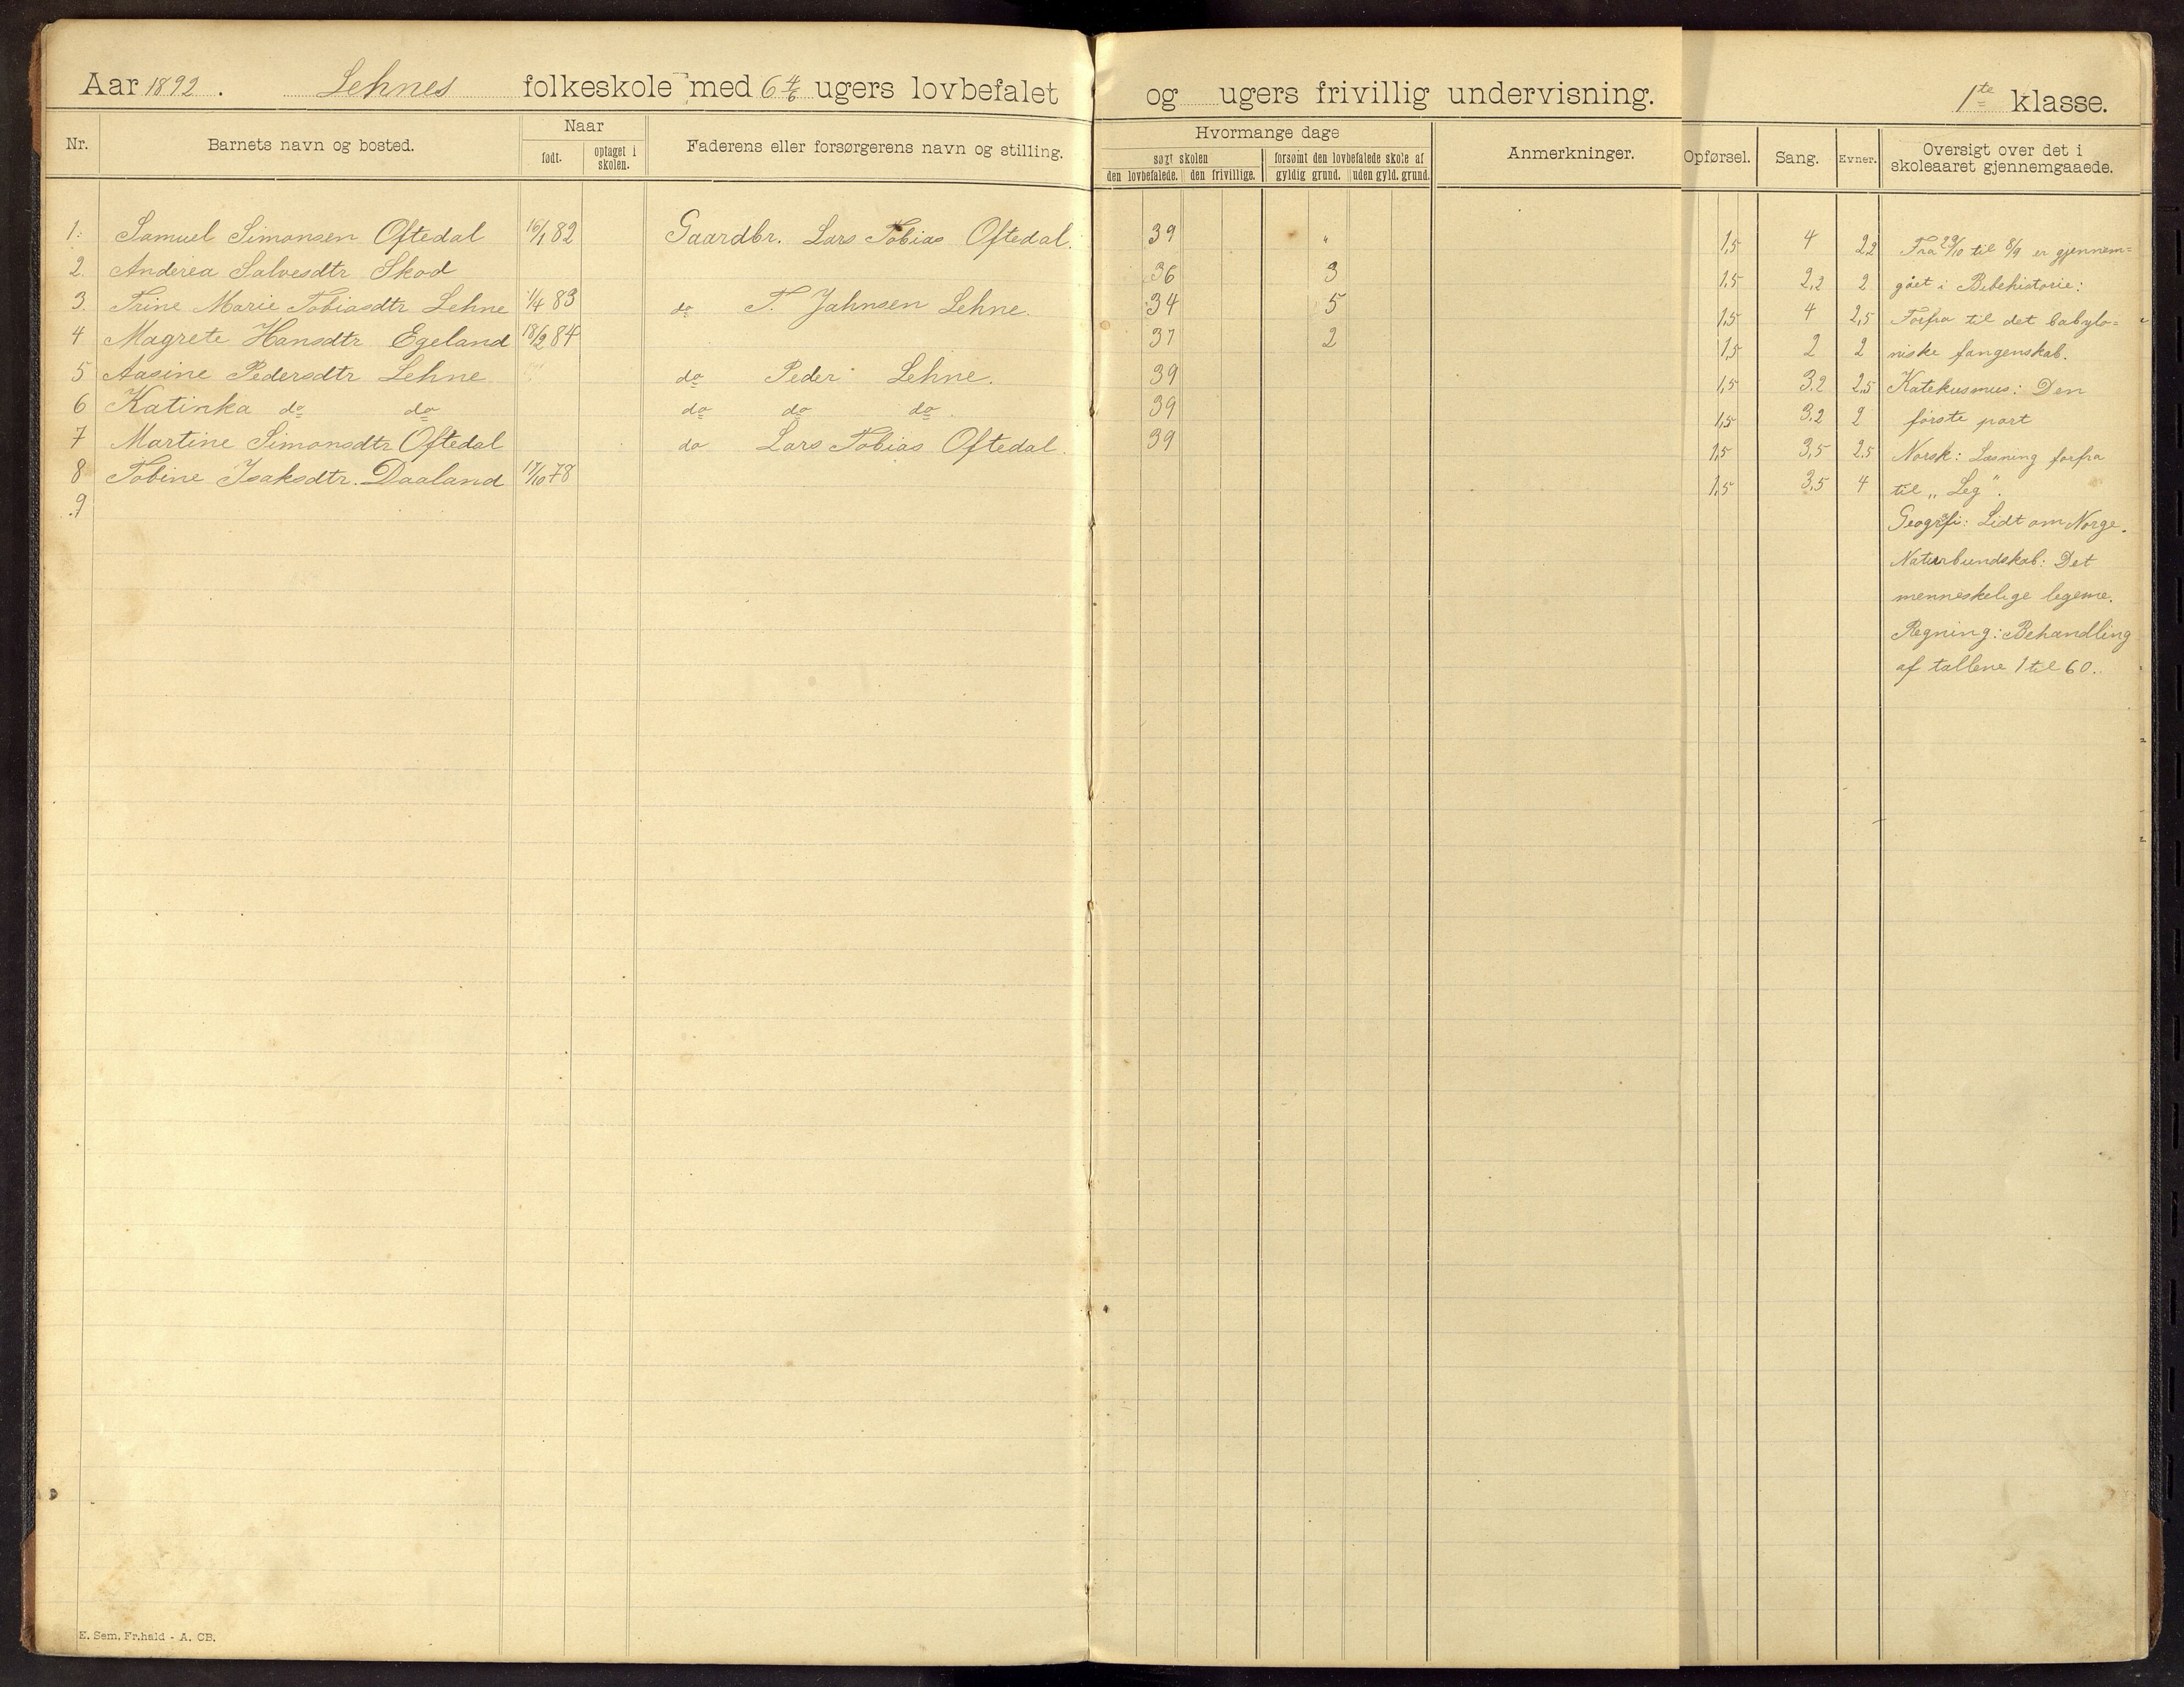 Aar 1892. Lehnes folkeskole med 6 4/6 ugers lovbefalet og ugers frivillig undervisning. 1te klasse.
Nr. Barnets navn og bosted. Naar født. optaget i skolen. Faderens eller forsørgerens navn og stilling. Hvormange dage søgt skolen den lovbefalede. den frivillige. forsømt den lovbefalede skole af gyldig grund. uden gyld. grund. Anmerkninger. Opførsel. Sang. Evner. Oversigt over det i skoleaaret gjennemgaaede.
1. Samuel Simonsen Oftedal 16/1 82 Gaardbr. Lars Tobias Oftedal. 39 " 1,5 4 2,2 Fra 29/10 til 8/9 er gjennem=
2. Anderea Salvesdtr Skod 36 3 1,5 2,2 2 gået i Bibehistorie:
3. Trine Marie Tobiasdtr Lehne 1/4 83 do T. Jahnsen Lehne. 34 5 1,5 4 2,5 Forfra til det babylo=
4 Magrete Hansdtr Egeland 18/2 84 37 2 1,5 2 2 niske fangenskab.
5 Aasine Pedersdtr Lehne do Peder Lehne. 39 1,5 3.2 2.5 Katekismus: Den
6 Katinka do do do do do 39 1,5 3.2 2 første part
7 Martine Simonsdtr Oftedal do Lars Tobias Oftedal. 39 1,5 3,5 2.5 Norsk: Læsning forfra
8 Tobine Isaksdtr. Daaland 17/10 78 1,5 3,5 4 til „Leg".
9
Geografi: Lidt om Norge.
Naturkundskab: Det
menneskelige legeme.
Regning: Behandling
af tallene 1 til 60.
E. Sem, Fr.hald - A. CB.